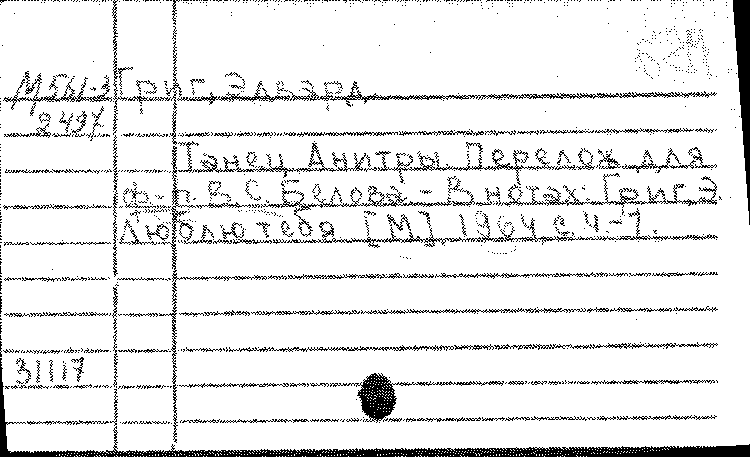 М561-3 Григ, Эдвард.
2497
Танец Анитры. Перелож. для
ф.-п. В. С. Белова - В нотах: Григ, Э.
Люблю тебя. [М], 1964, с. 4-7.
31117